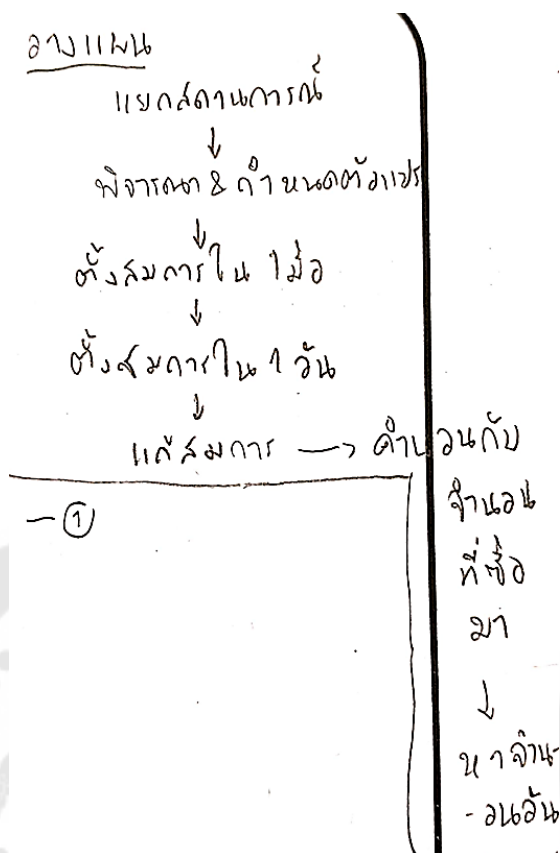 วางแผน
แยกสถานการณ์
↓
พิจารณา & กำหนดตัวแปร
↓
ตั้งสมการใน 1 มื้อ
↓
ตั้งสมการใน 1 วัน
↓
แก้สมการ → คำนวนกับ
จำนวน
ที่ซื้อ
มา
↓
หาจำน-
-วนวัน
— ①